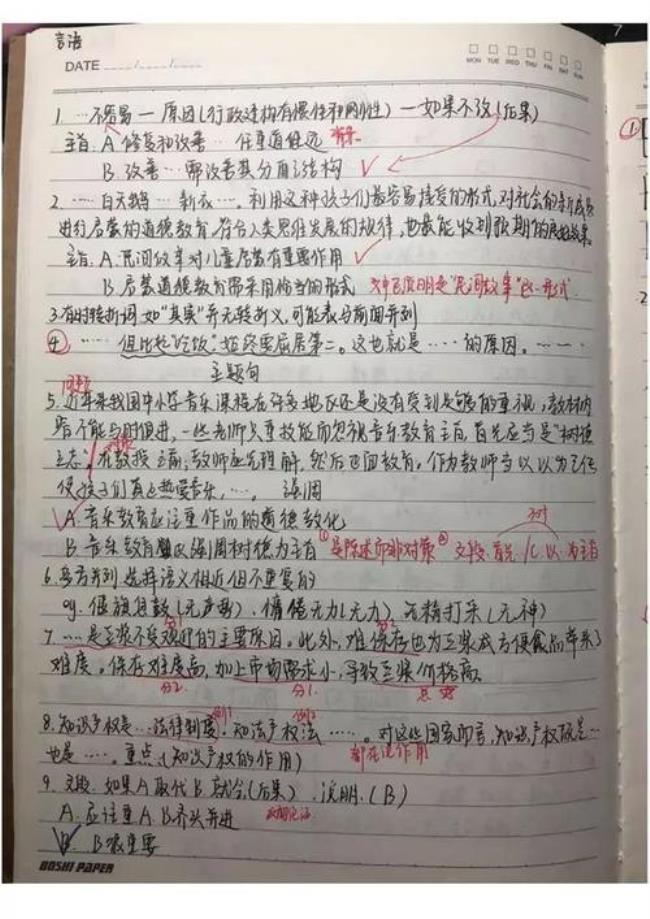 言语
DATE
MON TUE WED THU FRI SAT SUN
7
1. …不容易 — 原因(行政建构有惯性和刚性) — 如果不改(后果)
主旨: A. 修复和改善 … 任重道远 背景
B. 改善 … 需改善其分层结构 ✓
2. …… 白天鹅 … 新衣 …… 利用这种孩子们最容易接受的形式, 对社会的新成员
进行启蒙的道德教育, 符合人类思维发展的规律, 也最能收到预期的效果。
主旨: A. 民间故事对儿童启蒙有重要作用 ✓
B. 启蒙道德教育需采用恰当的形式 文中已说明是"民间故事"这一形式
3. 有时转折词如"其实"并无转折义, 可能表与前面并列
④ …… 但比起"吃饭"始终要屈居第二。这也就是 …… 的原因。……
主题句
问题
5. 近年来我国中小学音乐课程在许多地区还是没有受到足够的重视, 教材内
容不能与时俱进, 一些老师只重技能而忽视音乐教育主旨, 首先应当是"树德
对策
立志", 在教授之前, 教师应先理解, 然后 教育。作为教师当以以为己任
使孩子们真正热爱音乐, …。 强调
A. 音乐教育应注重作品的道德教化
B. 音乐教育 强调树德为主旨 ① 是陈述而非对策 ② 文段: 首先 以 为主旨
6. 并列 选择语义相近但不重复的
eg. 偃旗息鼓(无声势)、倦怠无力(无力)、无精打采(无神)
分1 分2
7. …… 是豆浆不受欢迎的主要原因。此外, 难保存也为豆浆成方便食品带来了
难度。保存难度高, 加上市场需求小, 导致豆浆价格高。
分2 分1 总
例1 例2
8. 知识产权是 … 法律制度。知识产权法 ……。对这些国家而言, 知识产权既是 …
也是 ……。重点(知识产权的作用) 都在说作用
9. 文段: 如果A取代B, 就会(后果)、说明.(B)
A. 应注重A、B齐头并进 反面论证
B. B很重要
BOSHI PAPER